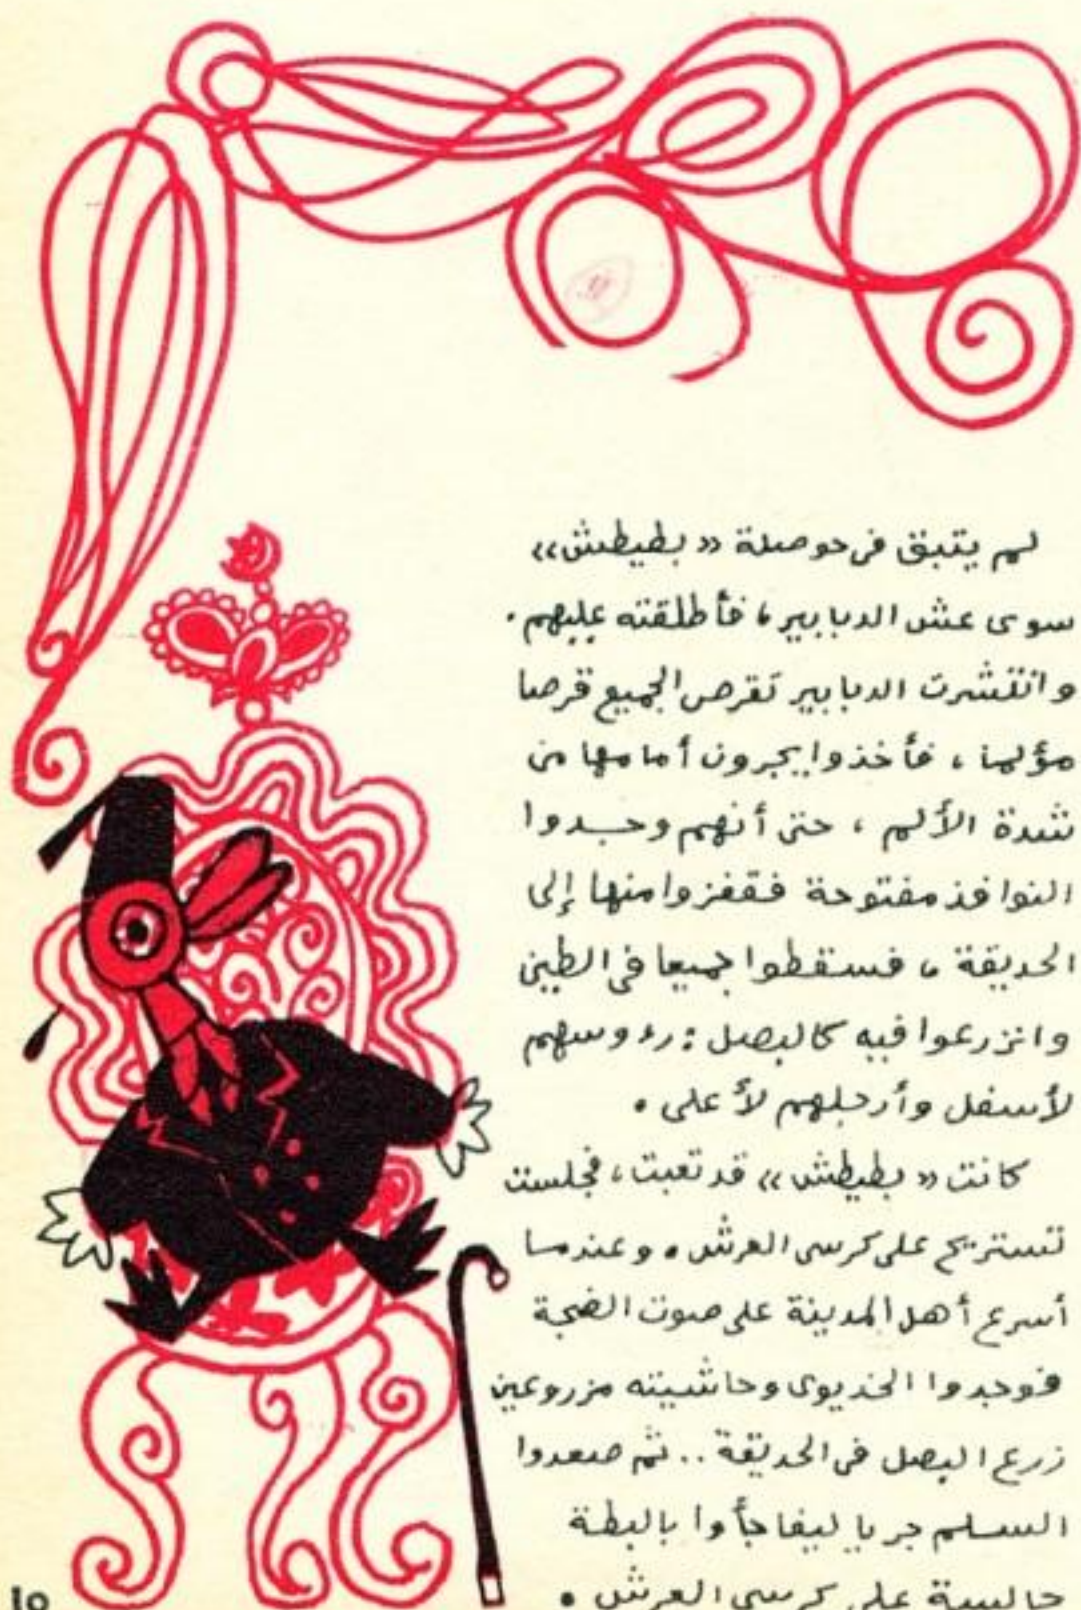 لم يتبق فى حوصلة « بطيطش »
سوى عش الدبابير ، فأطلقته عليهم .
وانتشرت الدبابير تقرص الجميع قرصا
مؤلما ، فأخذوا يجرون أمامها من
شدة الألم ، حتى أنهم وجدوا
النوافذ مفتوحة فقفزوا منها إلى
الحديقة ، فسقطوا جميعا فى الطين
وانزرعوا فيه كالبصل : رءوسهم
لأسفل وأرجلهم لأعلى .
كانت « بطيطش » قد تعبت ، فجلست
تستريح على كرسى العرش . وعندما
أسرع أهل المدينة على صوت الضجة
فوجدوا الخديوى وحاشيته مزروعين
زرع البصل فى الحديقة .. ثم صعدوا
السلم جريا ليفاجأوا بالبطة
جالسة على كرسى العرش .
١٥